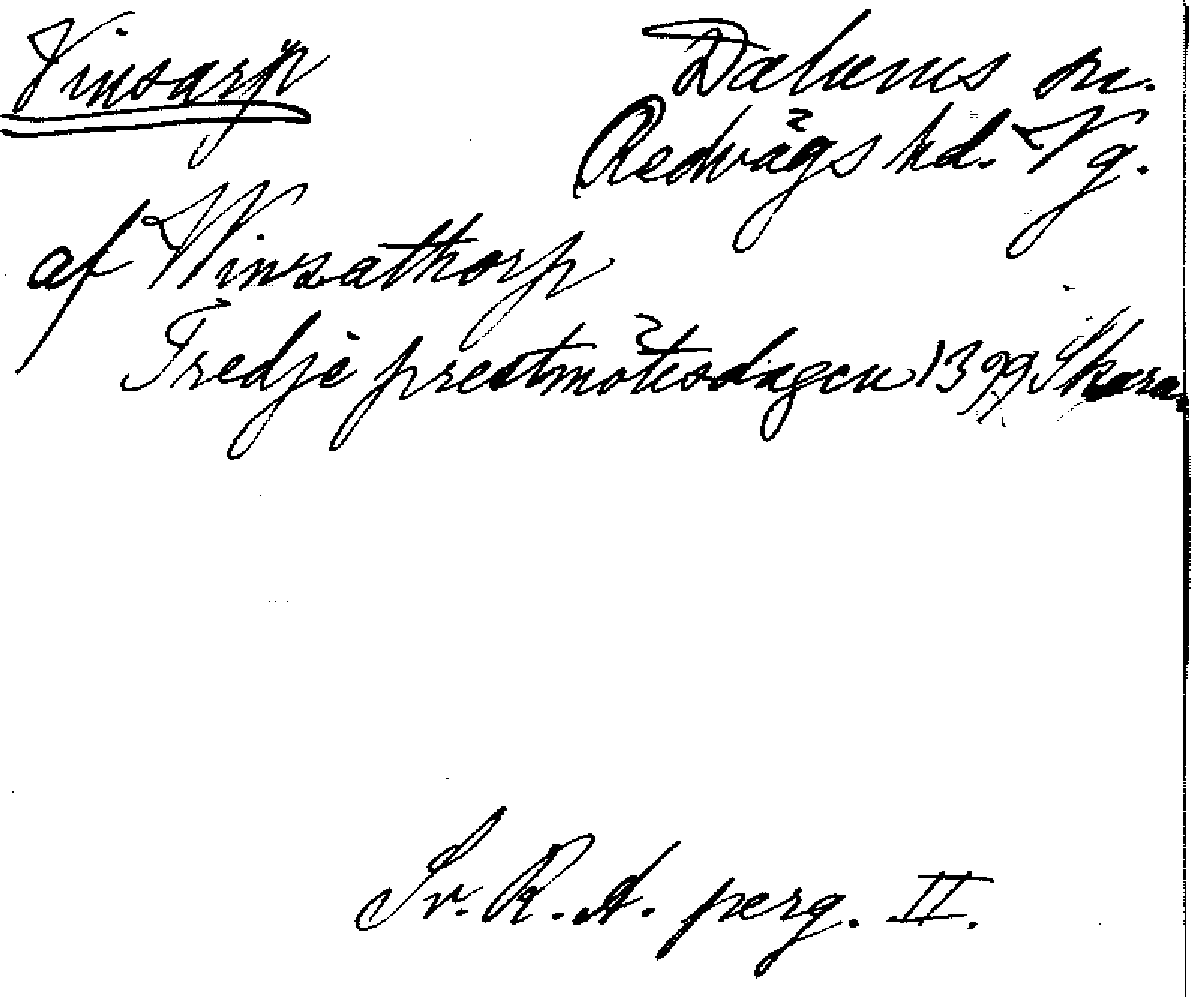 Vinsarp
Dalums sn.
Redvägs hd. Vg.
af Winsathorp
Tredje prestmötesdagen 1399 Skara.
Sv. R. A. perg. II.